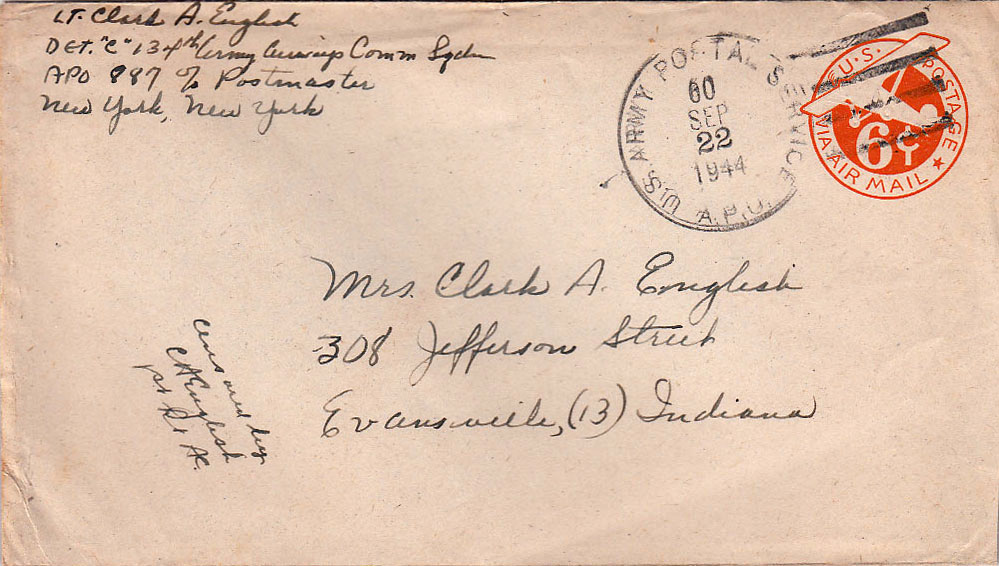 Lt. Clark A. English
DET. "C" 134th Army Airways Comm Sqdn
APO 887 % Postmaster
New York, New York
U.S. ARMY POSTAL SERVICE
60
SEP
22
1944
A.P.O.
U.S. POSTAGE
6¢
VIA AIR MAIL
Mrs. Clark A. English
308 Jefferson Street
Evansville, (13) Indiana
Censored by
CAEnglish
1st Lt AC.